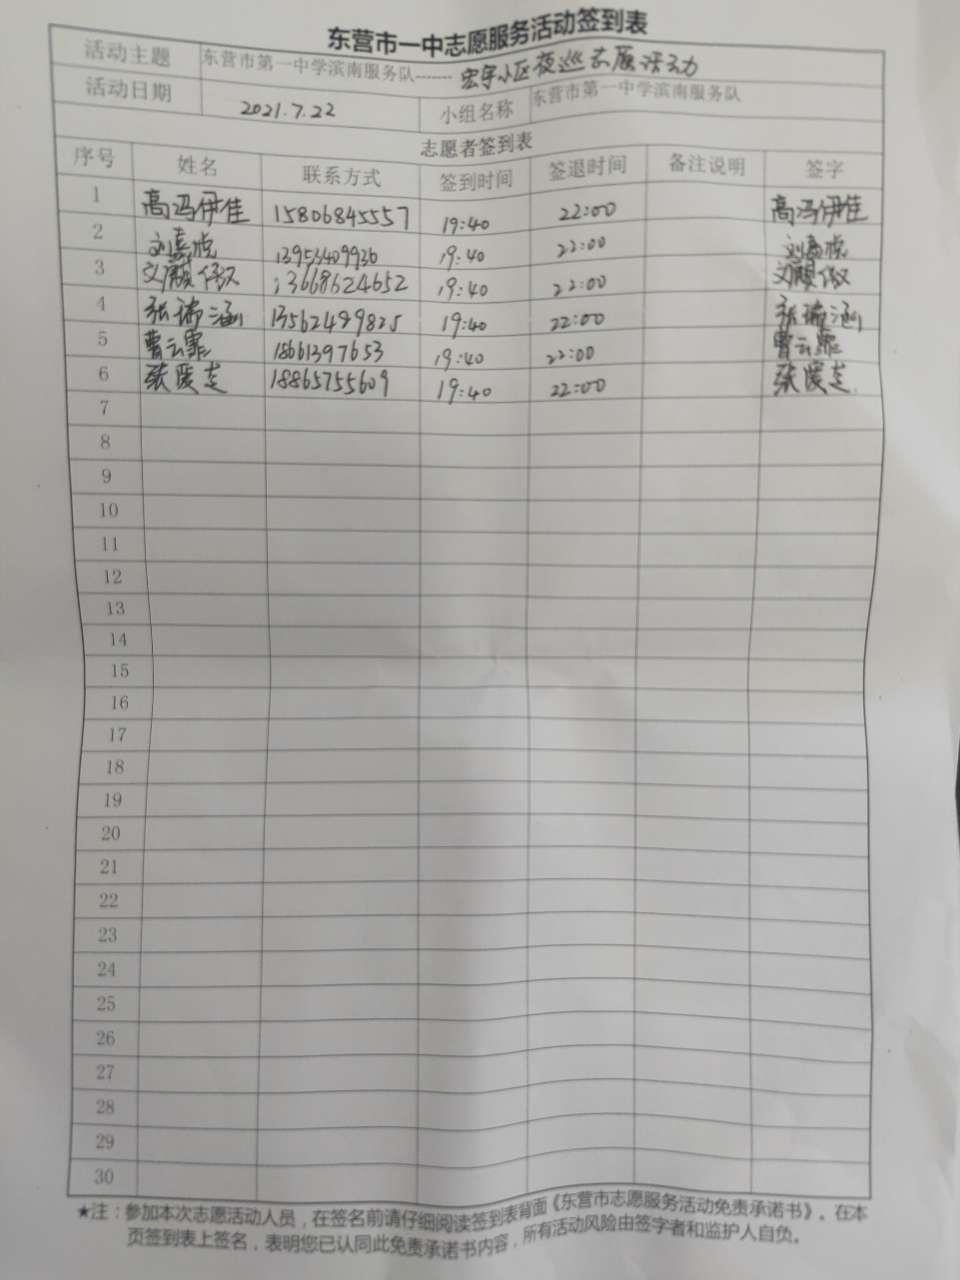 东营市一中志愿服务活动签到表
活动主题 东营市第一中学滨南服务队------- 宏宇小区夜巡志愿活动
活动日期 2021.7.22 小组名称 东营市第一中学滨南服务队
志愿者签到表
序号 姓名 联系方式 签到时间 签退时间 备注说明 签字
1 高冯伊佳 15806845557 19:40 22:00 高冯伊佳
2 刘嘉 13953409936 19:40 22:00 刘嘉
3 13668624652 19:40 22:00
4 张瑞涵 13562499825 19:40 22:00 张瑞涵
5 曹云霏 18661397653 19:40 22:00 曹云霏
6 张 18865755609 19:40 22:00 张
7
8
9
10
11
12
13
14
15
16
17
18
19
20
21
22
23
24
25
26
27
28
29
30
★注：参加本次志愿活动人员，在签名前请仔细阅读签到表背面《东营市志愿服务活动免责承诺书》。在本
页签到表上签名，表明您已认同此免责承诺书内容，所有活动风险由签字者和监护人自负。